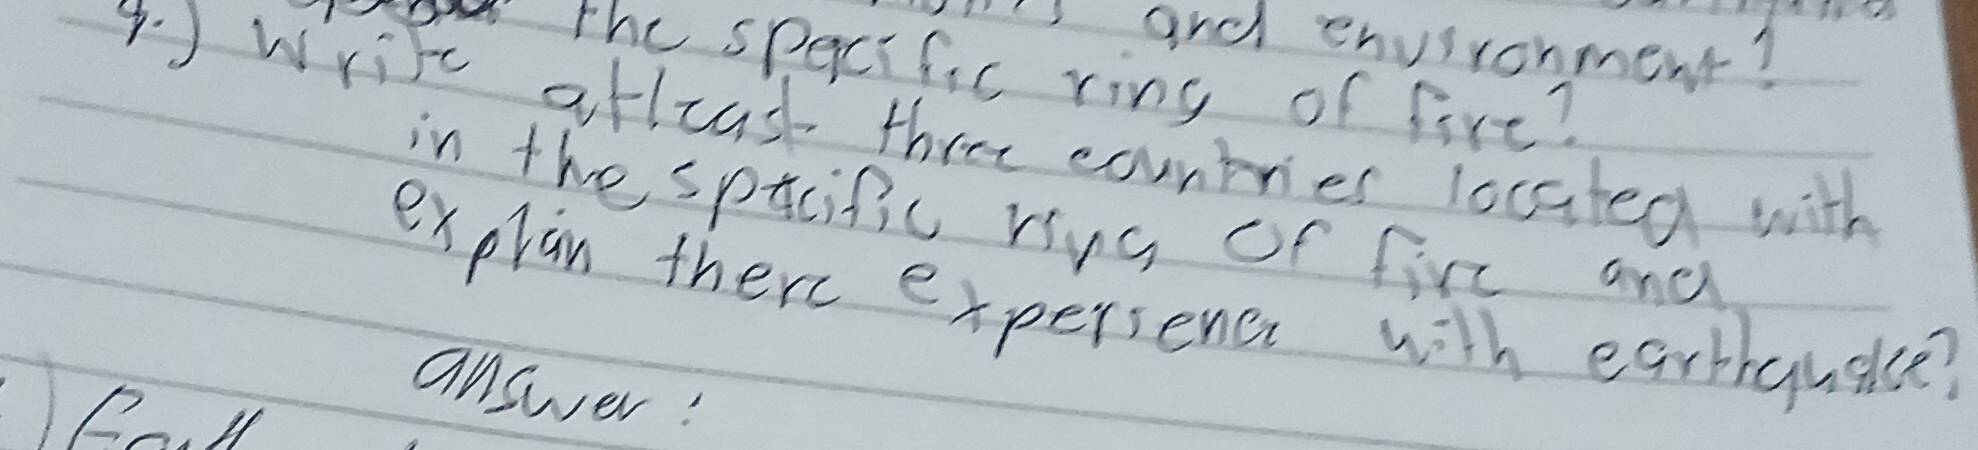 and environment?
the spacific ring of fire?
4.) Write atleast three countries located with
in the spacific ring of fire and
explain there expersence with earthquake?
answer: